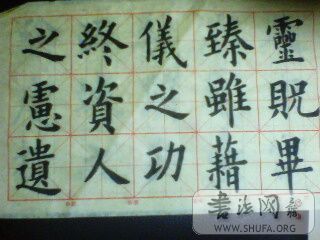 靈貺畢
臻雖藉
儀之功
終資人
之慮遺
書法网
WWW.SHUFA.ORG